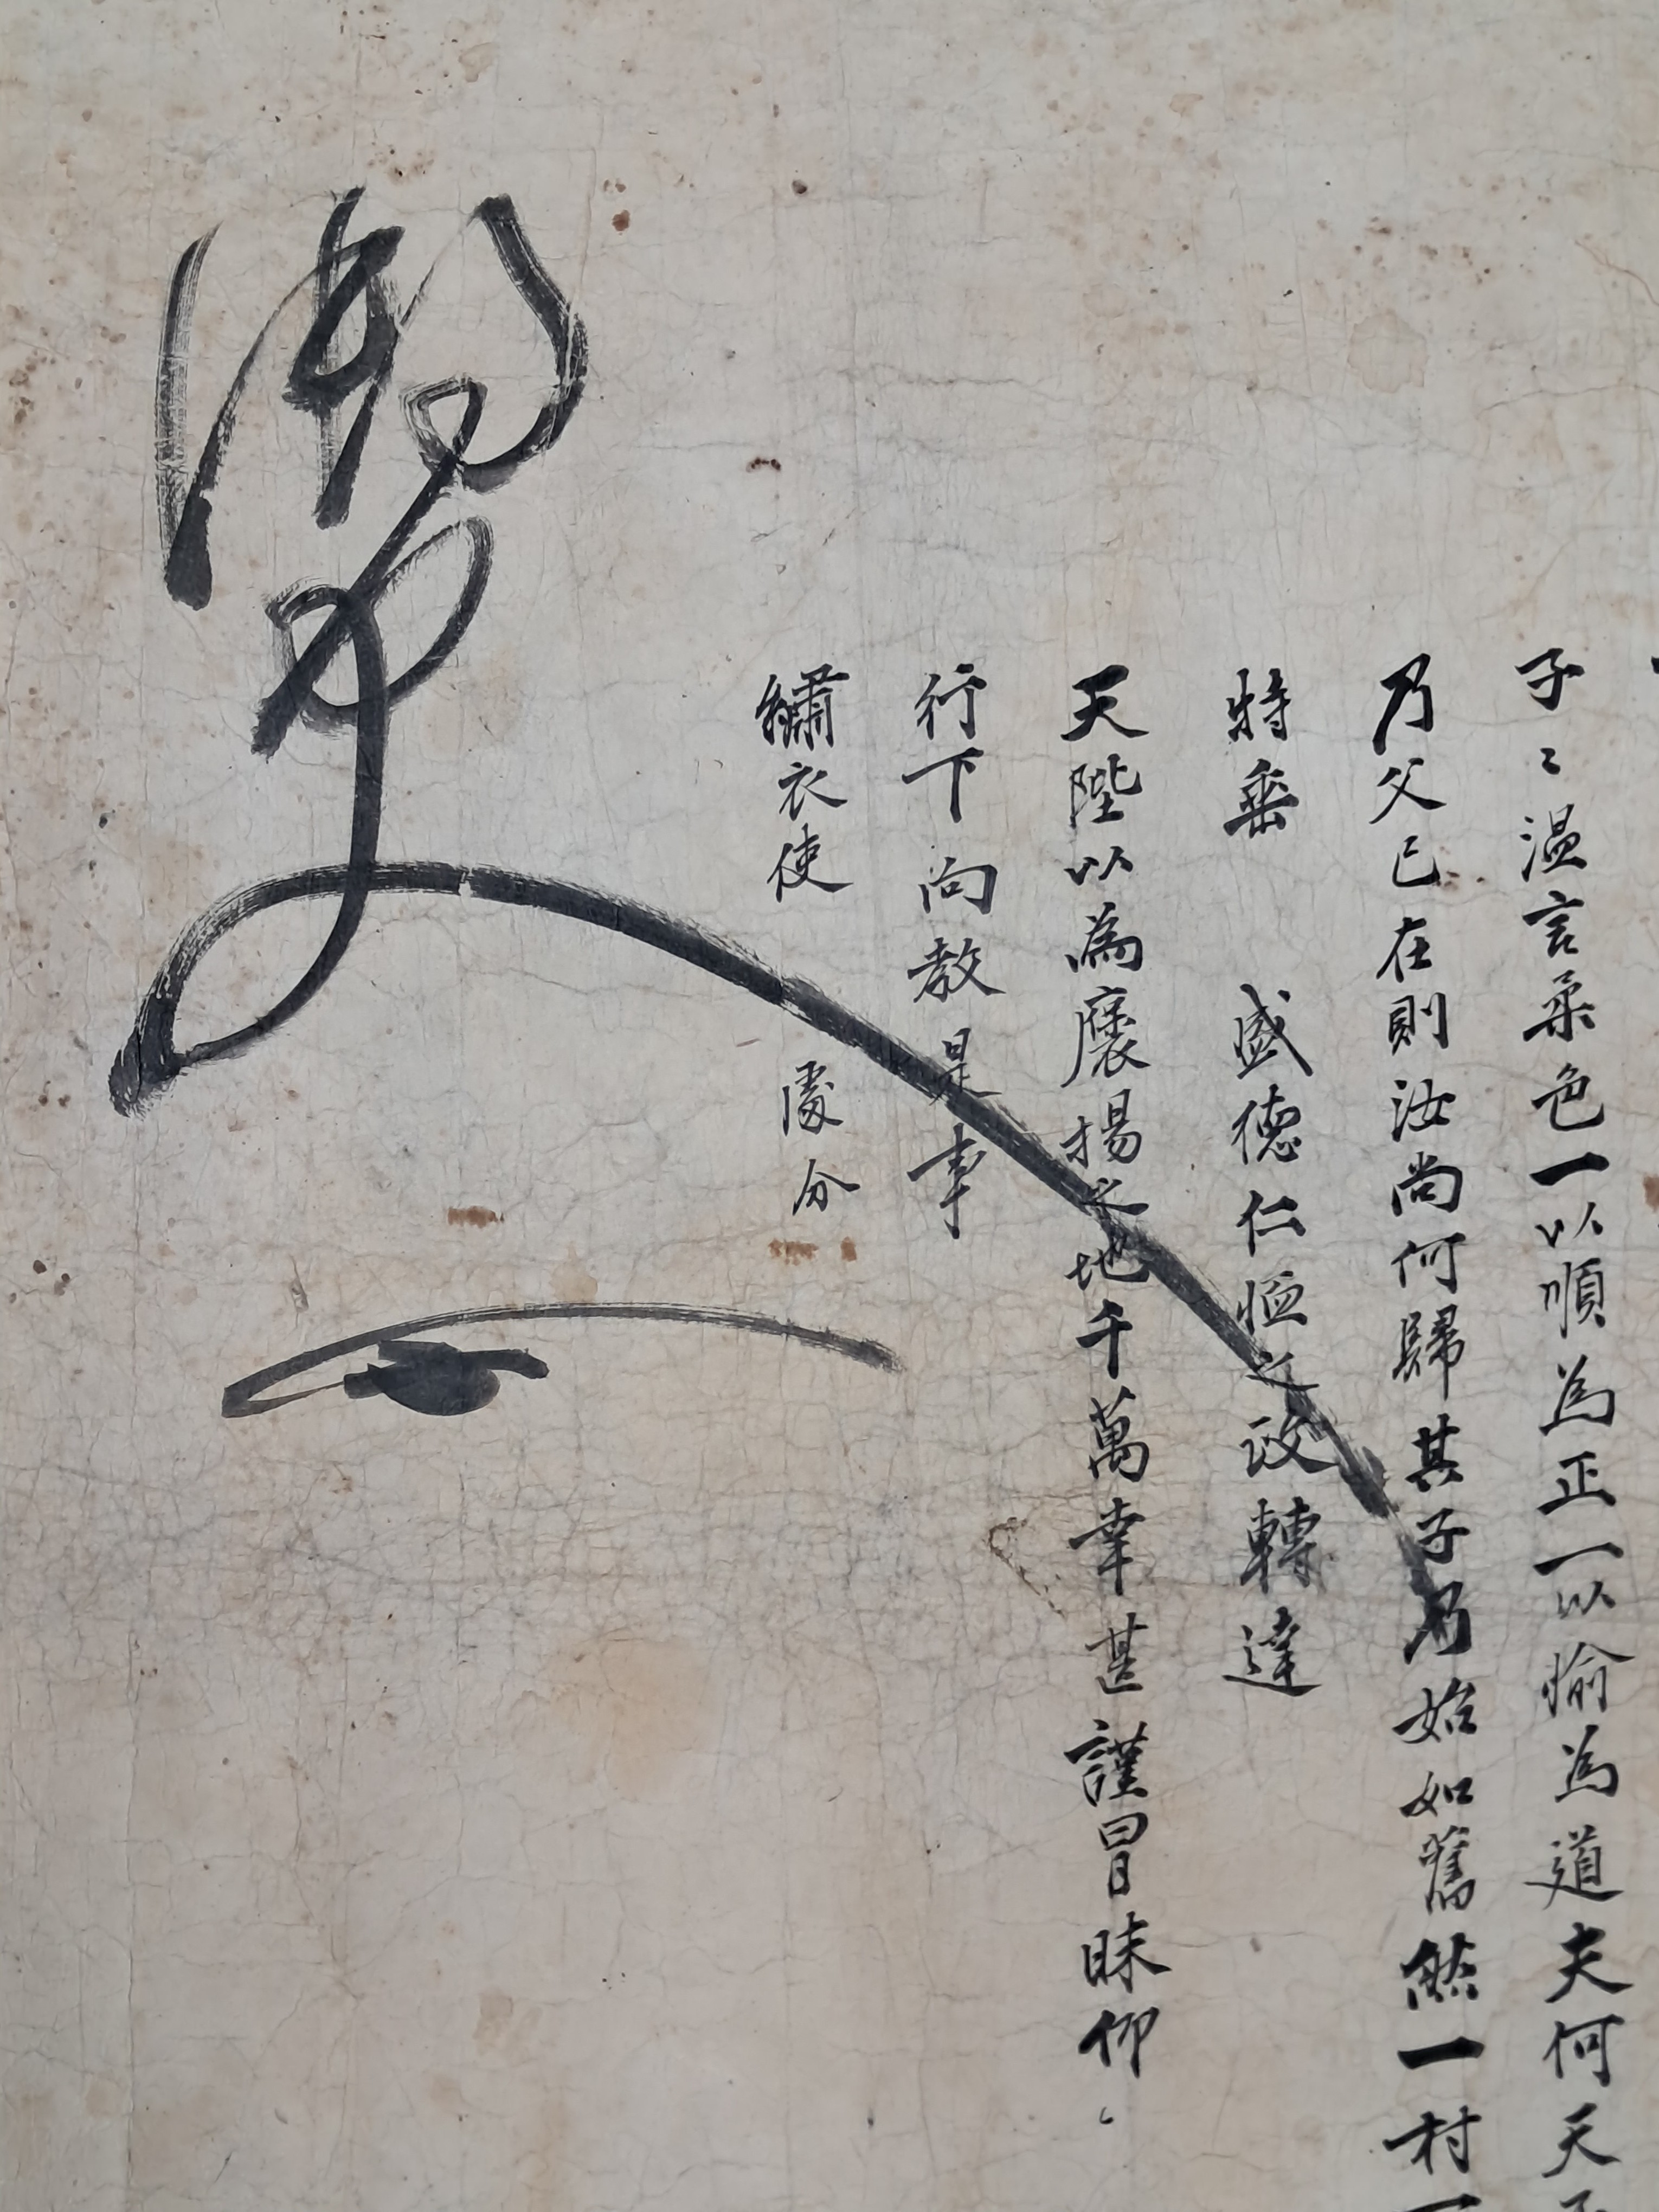 子〻溫言柔色一以順為正一以愉為道夫何天
乃父已在則汝尚何歸其子乃始如舊然一村
特垂 盛德仁恤之政轉達
天陛以為褒揚之地千萬幸甚謹冒昧仰
行下向教是事
繡衣使 處分